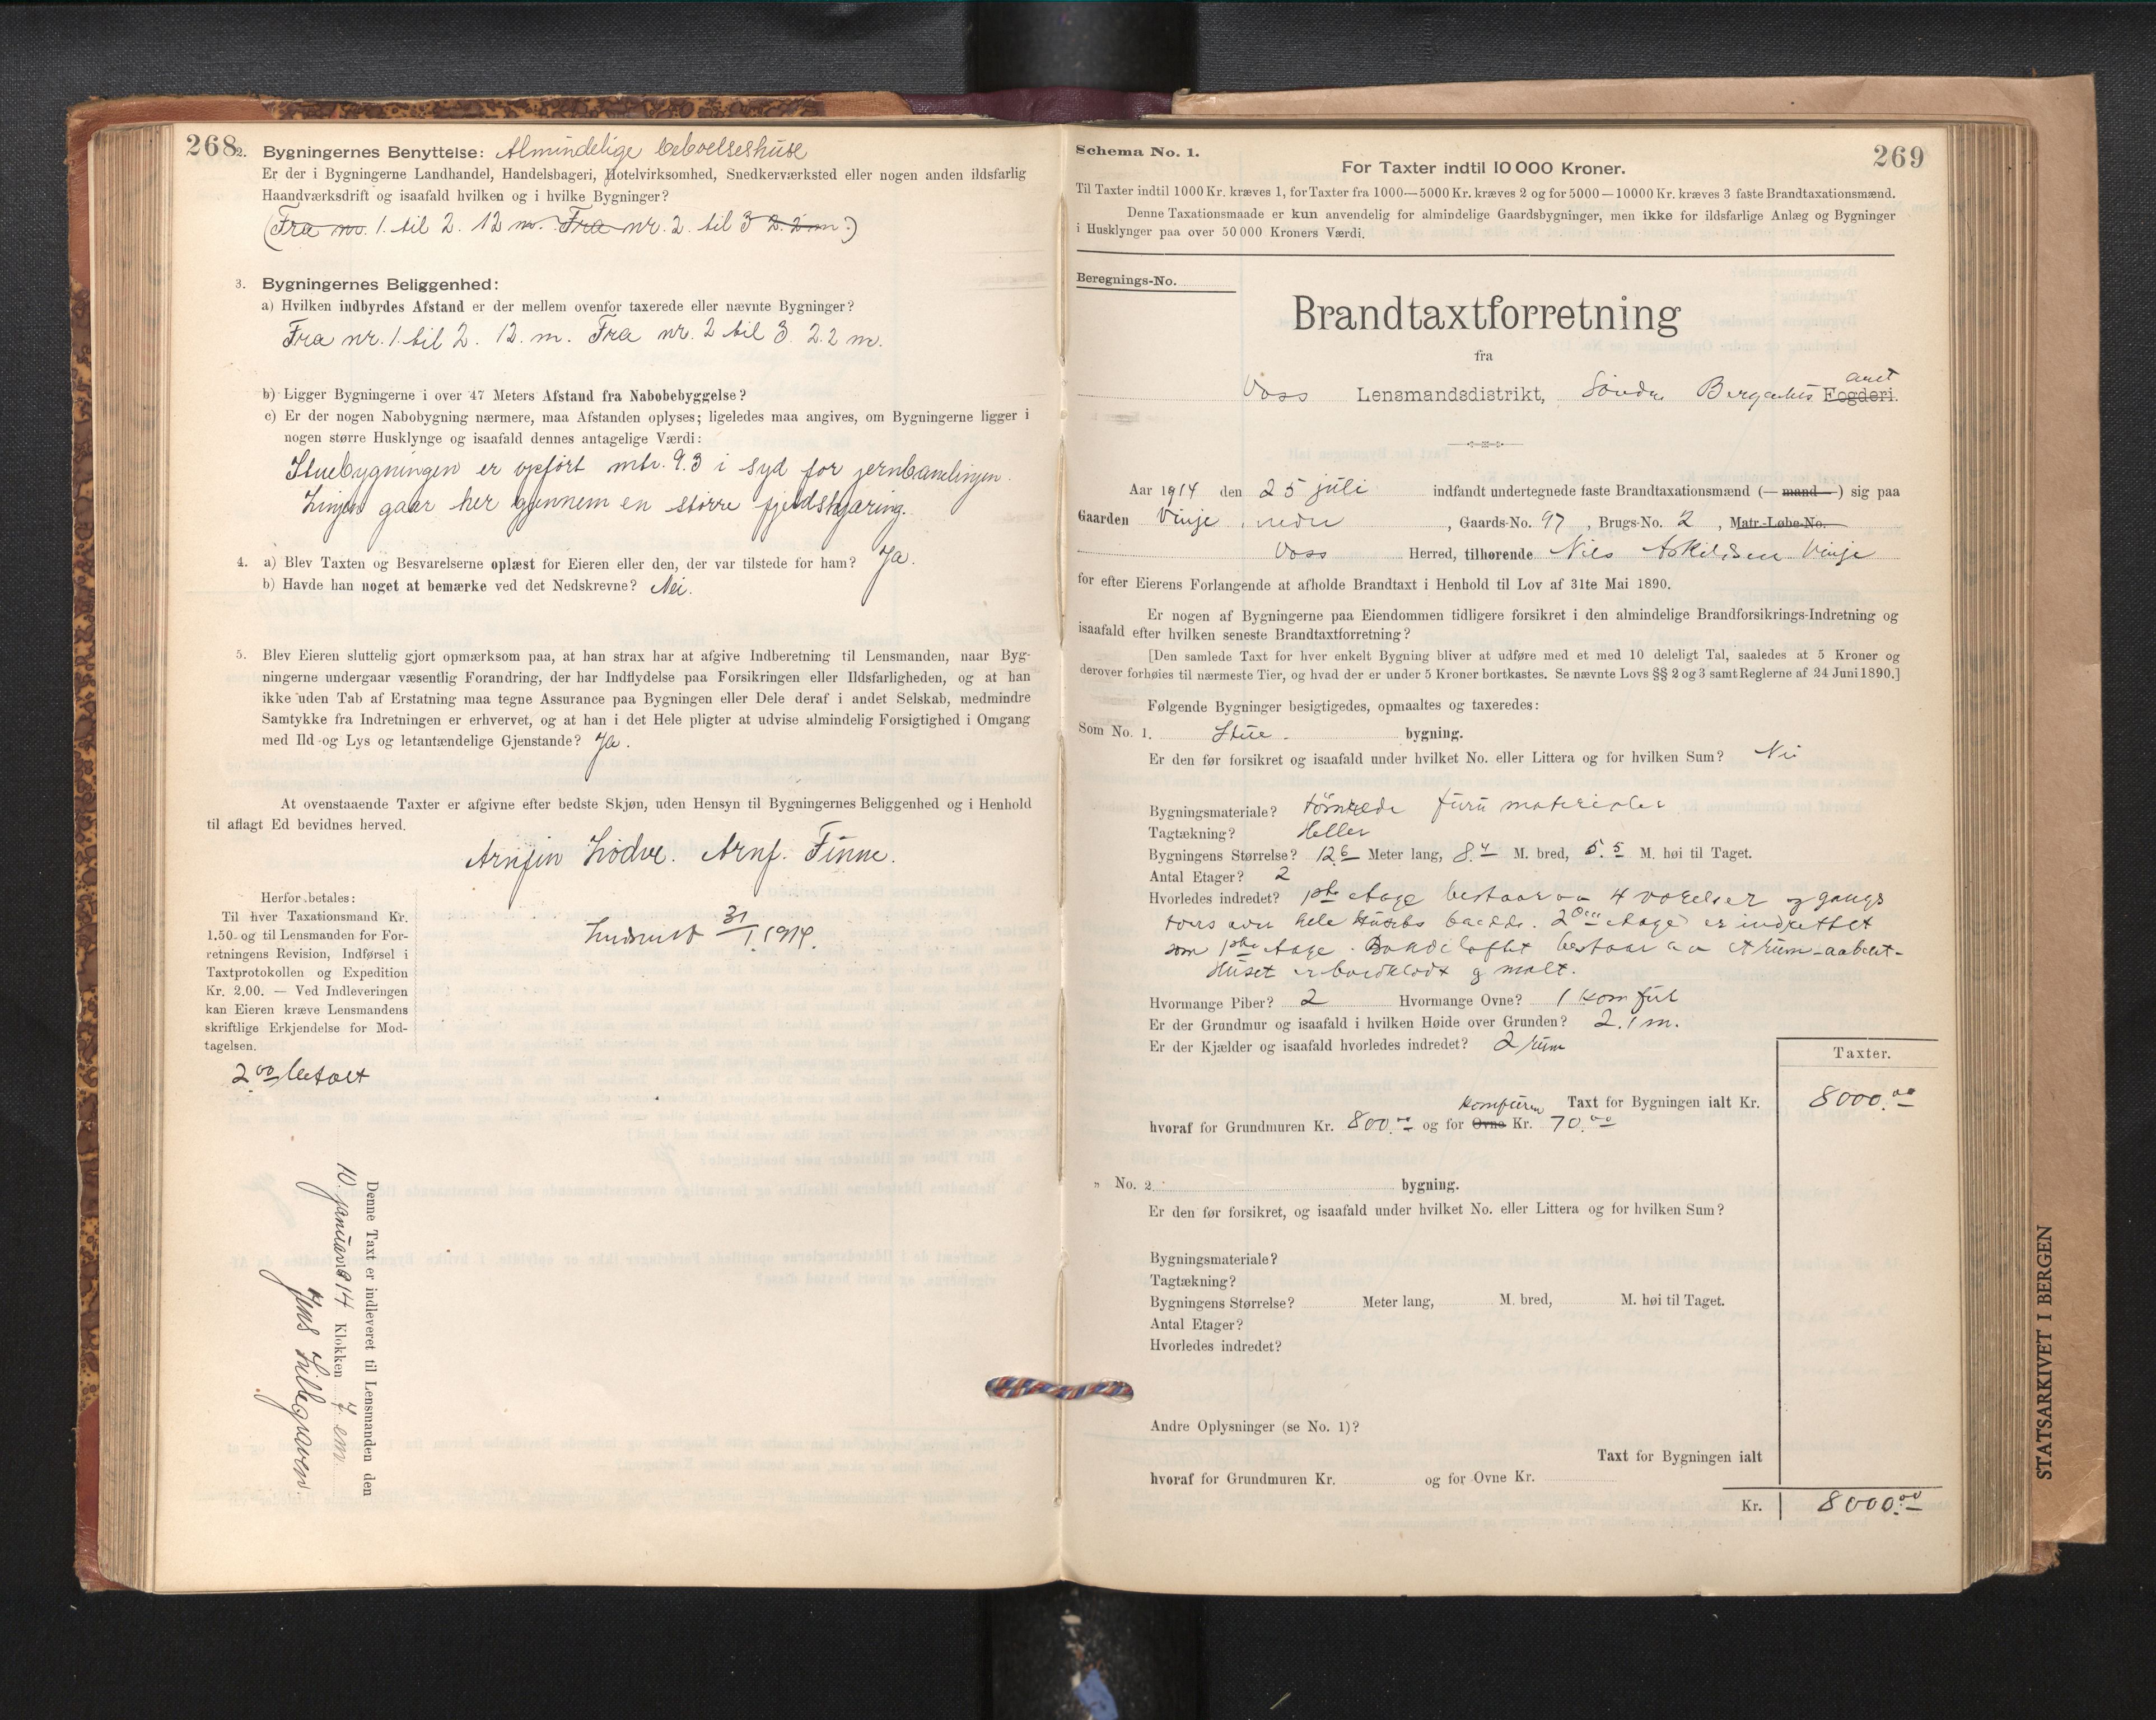 268
2. Bygningernes Benyttelse: Almindelige beboelseshuse
Er der i Bygningerne Landhandel, Handelsbageri, Hotelvirksomhed, Snedkerværksted eller nogen anden ildsfarlig
Haandværksdrift og isaafald hvilken og i hvilke Bygninger?
(Fra nr. 1. til 2. 12 m. Fra nr. 2. til 3 2.2 m.)
3. Bygningernes Beliggenhed:
a) Hvilken indbyrdes Afstand er der mellem ovenfor taxerede eller nævnte Bygninger?
Fra nr. 1. til 2. 12. m. Fra nr. 2 til 3. 2.2 m.
b) Ligger Bygningerne i over 47 Meters Afstand fra Nabobebyggelse?
c) Er der nogen Nabobygning nærmere, maa Afstanden oplyses; ligeledes maa angives, om Bygningerne ligger i
nogen større Husklynge og isaafald dennes antagelige Værdi:
Stuebygningen er opført mtr. 9.3 i syd for jernbanelinjen.
Linjen gaar her gjennem en større fjeldskjæring.
4. a) Blev Taxten og Besvarelserne oplæst for Eieren eller den, der var tilstede for ham? Ja.
b) Havde han noget at bemærke ved det Nedskrevne? Nei.
5. Blev Eieren sluttelig gjort opmærksom paa, at han strax har at afgive Indberetning til Lensmanden, naar Byg-
ningerne undergaar væsentlig Forandring, der har Indflydelse paa Forsikringen eller Ildsfarligheden, og at han
ikke uden Tab af Erstatning maa tegne Assurance paa Bygningen eller Dele deraf i andet Selskab, medmindre
Samtykke fra Indretningen er erhvervet, og at han i det Hele pligter at udvise almindelig Forsigtighed i Omgang
med Ild og Lys og letantændelige Gjenstande? Ja.
At ovenstaaende Taxter er afgivne efter bedste Skjøn, uden Hensyn til Bygningernes Beliggenhed og i Henhold
til aflagt Ed bevidnes herved.
Arnfin Lødve. Arnf. Finne.
31/1 1914.
Herfor betales:
Til hver Taxationsmand Kr.
1.50 og til Lensmanden for For-
retningens Revision, Indførsel i
Taxtprotokollen og Expedition
Kr. 2.00. — Ved Indleveringen
kan Eieren kræve Lensmandens
skriftlige Erkjendelse for Mod-
tagelsen.
2.00 betalt
Denne Taxt er indleveret til Lensmanden den
10. januar 1914 Klokken 7 em.
Jens Lillegraven
Schema No. 1.
269
For Taxter indtil 10 000 Kroner.
Til Taxter indtil 1000 Kr. kræves 1, for Taxter fra 1000—5000 Kr. kræves 2 og for 5000—10000 Kr. kræves 3 faste Brandtaxationsmænd.
Denne Taxationsmaade er kun anvendelig for almindelige Gaardsbygninger, men ikke for ildsfarlige Anlæg og Bygninger
i Husklynger paa over 50 000 Kroners Værdi.
Beregnings-No.
Brandtaxtforretning
fra
Voss Lensmandsdistrikt, Søndre Bergenhus Fogderi. amt
Aar 1914 den 25 juli indfandt undertegnede faste Brandtaxationsmænd (— mand —) sig paa
Gaarden Vinje nedre, Gaards-No. 97, Brugs-No. 2, Matr.-Løbe-No.
Voss Herred, tilhørende Nils Askildsen Vinje
for efter Eierens Forlangende at afholde Brandtaxt i Henhold til Lov af 31te Mai 1890.
Er nogen af Bygningerne paa Eiendommen tidligere forsikret i den almindelige Brandforsikrings-Indretning og
isaafald efter hvilken seneste Brandtaxtforretning?
[Den samlede Taxt for hver enkelt Bygning bliver at udføre med et med 10 deleligt Tal, saaledes at 5 Kroner og
derover forhøies til nærmeste Tier, og hvad der er under 5 Kroner bortkastes. Se nævnte Lovs §§ 2 og 3 samt Reglerne af 24 Juni 1890.]
Følgende Bygninger besigtigedes, opmaaltes og taxeredes:
Som No. 1. Stue. bygning.
Er den før forsikret og isaafald under hvilket No. eller Littera og for hvilken Sum? Nei
Bygningsmateriale? tømrede furu materialer
Tagtækning? Heller
Bygningens Størrelse? 12.6 Meter lang, 8.4 M. bred, 5.5 M. høi til Taget.
Antal Etager? 2
Hvorledes indredet? 1ste etage bestaar av 4 værelser og gangs
tvers over hele husets bredde. 2den etage er indrettet
som 1ste etage. bestaar av et rum aabent.
Huset er bordklædt og malt.
Hvormange Piber? 2 Hvormange Ovne? 1 komfur
Er der Grundmur og isaafald i hvilken Høide over Grunden? 2.1 m.
Er der Kjælder og isaafald hvorledes indredet? 2 rum
Taxter.
Taxt for Bygningen ialt Kr. 8000.00
komfuren
hvoraf for Grundmuren Kr. 800.00 og for Ovne Kr. 70.00
„ No. 2 bygning.
Er den før forsikret, og isaafald under hvilket No. eller Littera og for hvilken Sum?
Bygningsmateriale?
Tagtækning?
Bygningens Størrelse? Meter lang, M. bred, M. høi til Taget.
Antal Etager?
Hvorledes indredet?
Andre Oplysninger (se No. 1)?
Taxt for Bygningen ialt
hvoraf for Grundmuren Kr. og for Ovne Kr.
Kr. 8000.00
STATSARKIVET I BERGEN